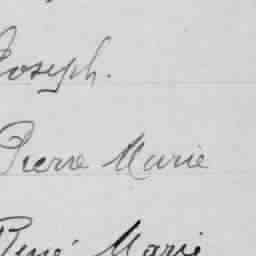 Joseph.
Pierre Marie
René Marie